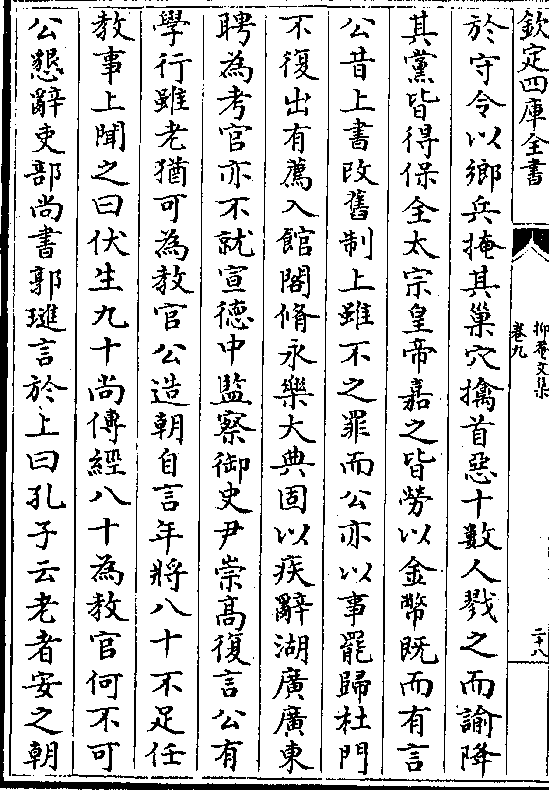 欽定四庫全書
抑菴文集
卷九
二十八
於守令以鄉兵掩其巢穴擒首惡十數人戮之而諭降
其黨皆得保全太宗皇帝嘉之皆勞以金幣既而有言
公昔上書改舊制上雖不之罪而公亦以事罷歸杜門
不復出有薦入館閣脩永樂大典固以疾辭湖廣廣東
聘為考官亦不就宣德中監察御史尹崇高復言公有
學行雖老猶可為教官公造朝自言年將八十不足任
教事上聞之曰伏生九十尚傳經八十為教官何不可
公懇辭吏部尚書郭璡言於上曰孔子云老者安之朝